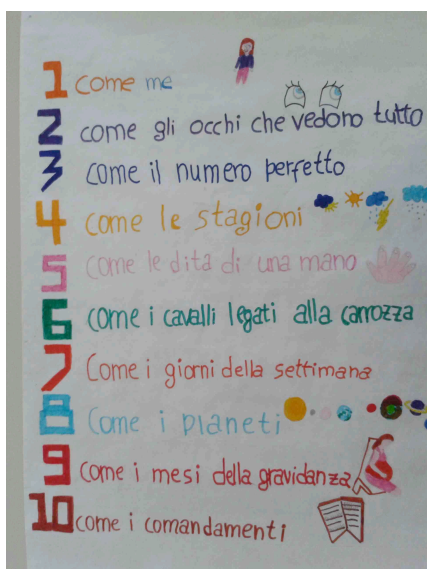 1 come me
2 come gli occhi che vedono tutto
3 come il numero perfetto
4 come le stagioni
5 come le dita di una mano
6 come i cavalli legati alla carrozza
7 Come i giorni della settimana
8 Come i pianeti
9 come i mesi della gravidanza
10 come i comandamenti